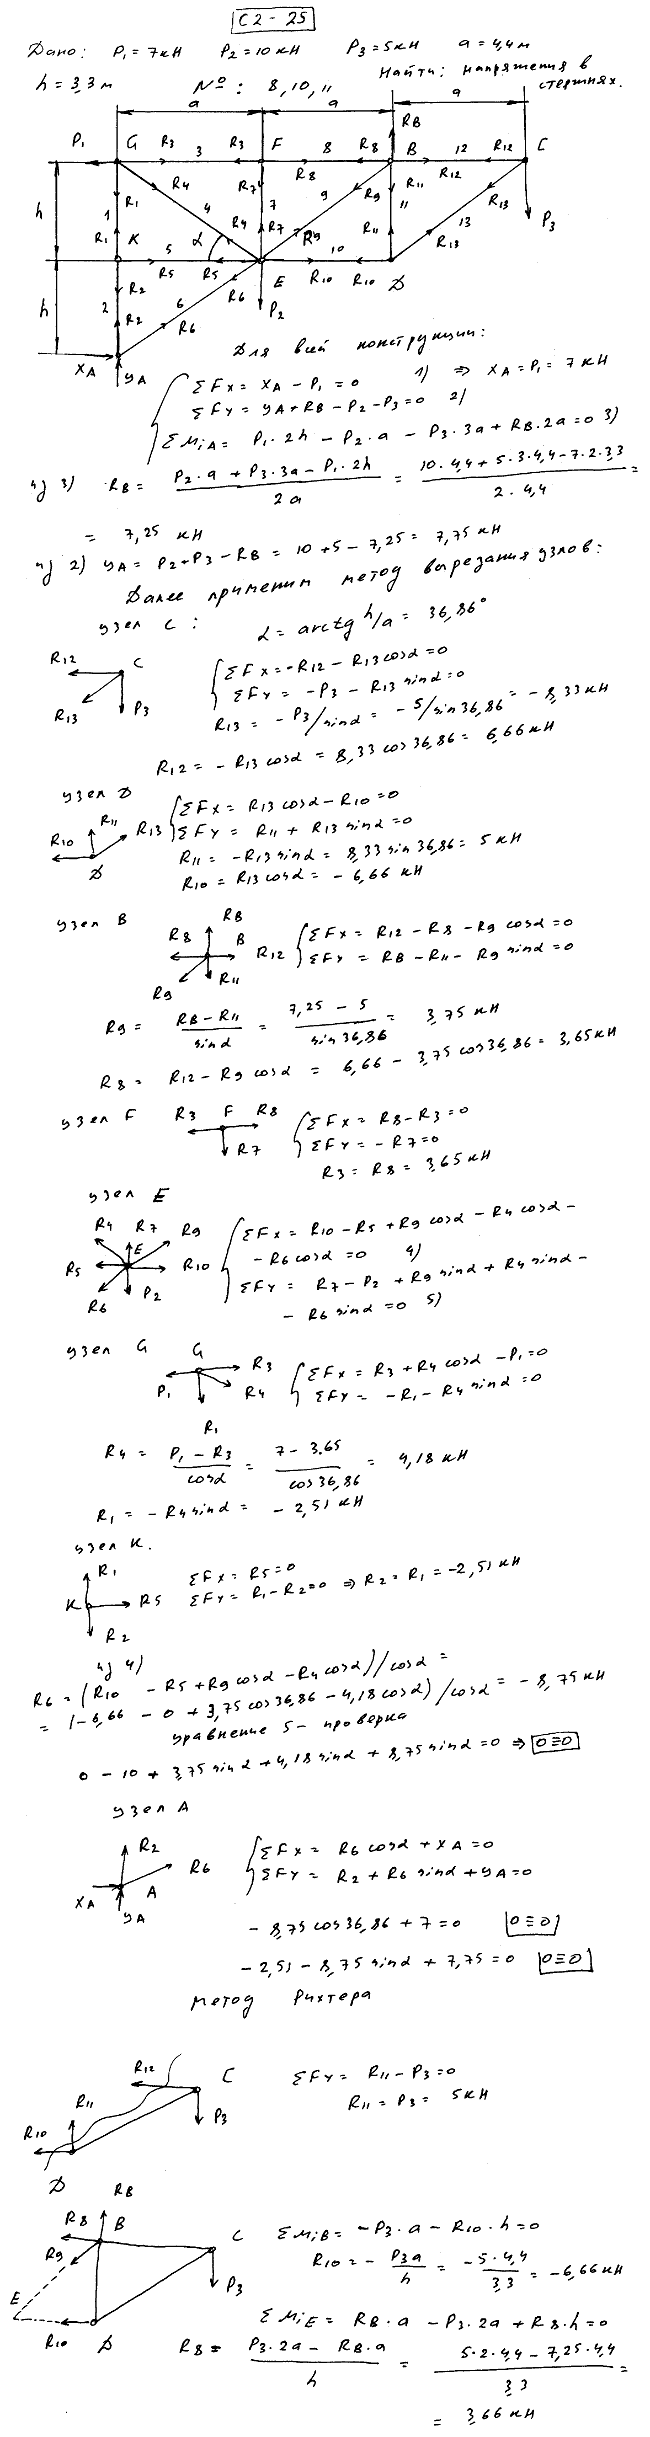 С2-25
Дано: P₁=7кН P₂=10кН P₃=5кН a=4,4м
Найти: напряжения в
стержнях.
h=3,3м №: 8,10,11
a a a
RB
P₁ G R3 3 R3 F 8 R8 B 12 R12 C
R8 R11 R12
R4 R7 9 R9
R1 4 7 11 R13
h 1 R4 R7 R9 13 P3
R1 K 5 α R11 R13
R5 R5 E 10 Д
R2 R6 R10 R10
h 2 6 P2
R2 R6
XA YA
Для всей конструкции:
ΣFx = XA - P₁ = 0 1) ⇒ XA = P₁ = 7 кН
ΣFy = YA + RB - P2 - P3 = 0 2)
ΣMiA = P₁·2h - P2·a - P3·3a + RB·2a = 0 3)
из 3) RB = (P2·a + P3·3a - P₁·2h)/2a = (10·4,4 + 5·3·4,4 - 7·2·3,3)/(2·4,4) =
= 7,25 кН
из 2) YA = P2 + P3 - RB = 10 + 5 - 7,25 = 7,75 кН
Далее применим метод вырезания узлов:
узел C: α = arctg h/a = 36,86°
R12 C
R13 P3
ΣFx = -R12 - R13 cosα = 0
ΣFy = -P3 - R13 sinα = 0
R13 = -P3/sinα = -5/sin36,86 = -8,33 кН
R12 = -R13 cosα = 8,33 cos36,86 = 6,66 кН
узел Д
R10 R11 R13
Д
ΣFx = R13 cosα - R10 = 0
ΣFy = R11 + R13 sinα = 0
R11 = -R13 sinα = 8,33 sin36,86 = 5 кН
R10 = R13 cosα = -6,66 кН
узел B
RB
R8 B R12
R9 R11
ΣFx = R12 - R8 - R9 cosα = 0
ΣFy = RB - R11 - R9 sinα = 0
R9 = (RB - R11)/sinα = (7,25 - 5)/sin36,86 = 3,75 кН
R8 = R12 - R9 cosα = 6,66 - 3,75 cos36,86 = 3,65 кН
узел F
R3 F R8
R7
ΣFx = R8 - R3 = 0
ΣFy = -R7 = 0
R3 = R8 = 3,65 кН
узел E
R4 R7 R9
R5 E R10
R6 P2
ΣFx = R10 - R5 + R9 cosα - R4 cosα -
- R6 cosα = 0 4)
ΣFy = R7 - P2 + R9 sinα + R4 sinα -
- R6 sinα = 0 5)
узел G
G R3
P₁ R4
R1
ΣFx = R3 + R4 cosα - P₁ = 0
ΣFy = -R1 - R4 sinα = 0
R4 = (P₁ - R3)/cosα = (7 - 3.65)/cos36,86 = 4,18 кН
R1 = -R4 sinα = -2,51 кН
узел K.
R1
K R5
R2
ΣFx = R5 = 0
ΣFy = R1 - R2 = 0 ⇒ R2 = R1 = -2,51 кН
из 4)
R6 = (R10 - R5 + R9 cosα - R4 cosα)/cosα =
= (-6,66 - 0 + 3,75 cos36,86 - 4,18 cosα)/cosα = -8,75 кН
уравнение 5 - проверка
0 - 10 + 3,75 sinα + 4,18 sinα + 8,75 sinα = 0 ⇒ 0≡0
узел A
R2
R6
XA A
YA
ΣFx = R6 cosα + XA = 0
ΣFy = R2 + R6 sinα + YA = 0
- 8,75 cos36,86 + 7 = 0 0≡0
- 2,51 - 8,75 sinα + 7,75 = 0 0≡0
метод Рихтера
R12 C
R11 P3
R10
Д
ΣFy = R11 - P3 = 0
R11 = P3 = 5кН
RB
R8 B C
R9 P3
E
R10 Д
ΣMiB = -P3·a - R10·h = 0
R10 = - P3a/h = -5·4,4/3,3 = -6,66 кН
ΣMiE = RB·a - P3·2a + R8·h = 0
R8 = (P3·2a - RB·a)/h = (5·2·4,4 - 7,25·4,4)/3,3 =
= 3,66 кН